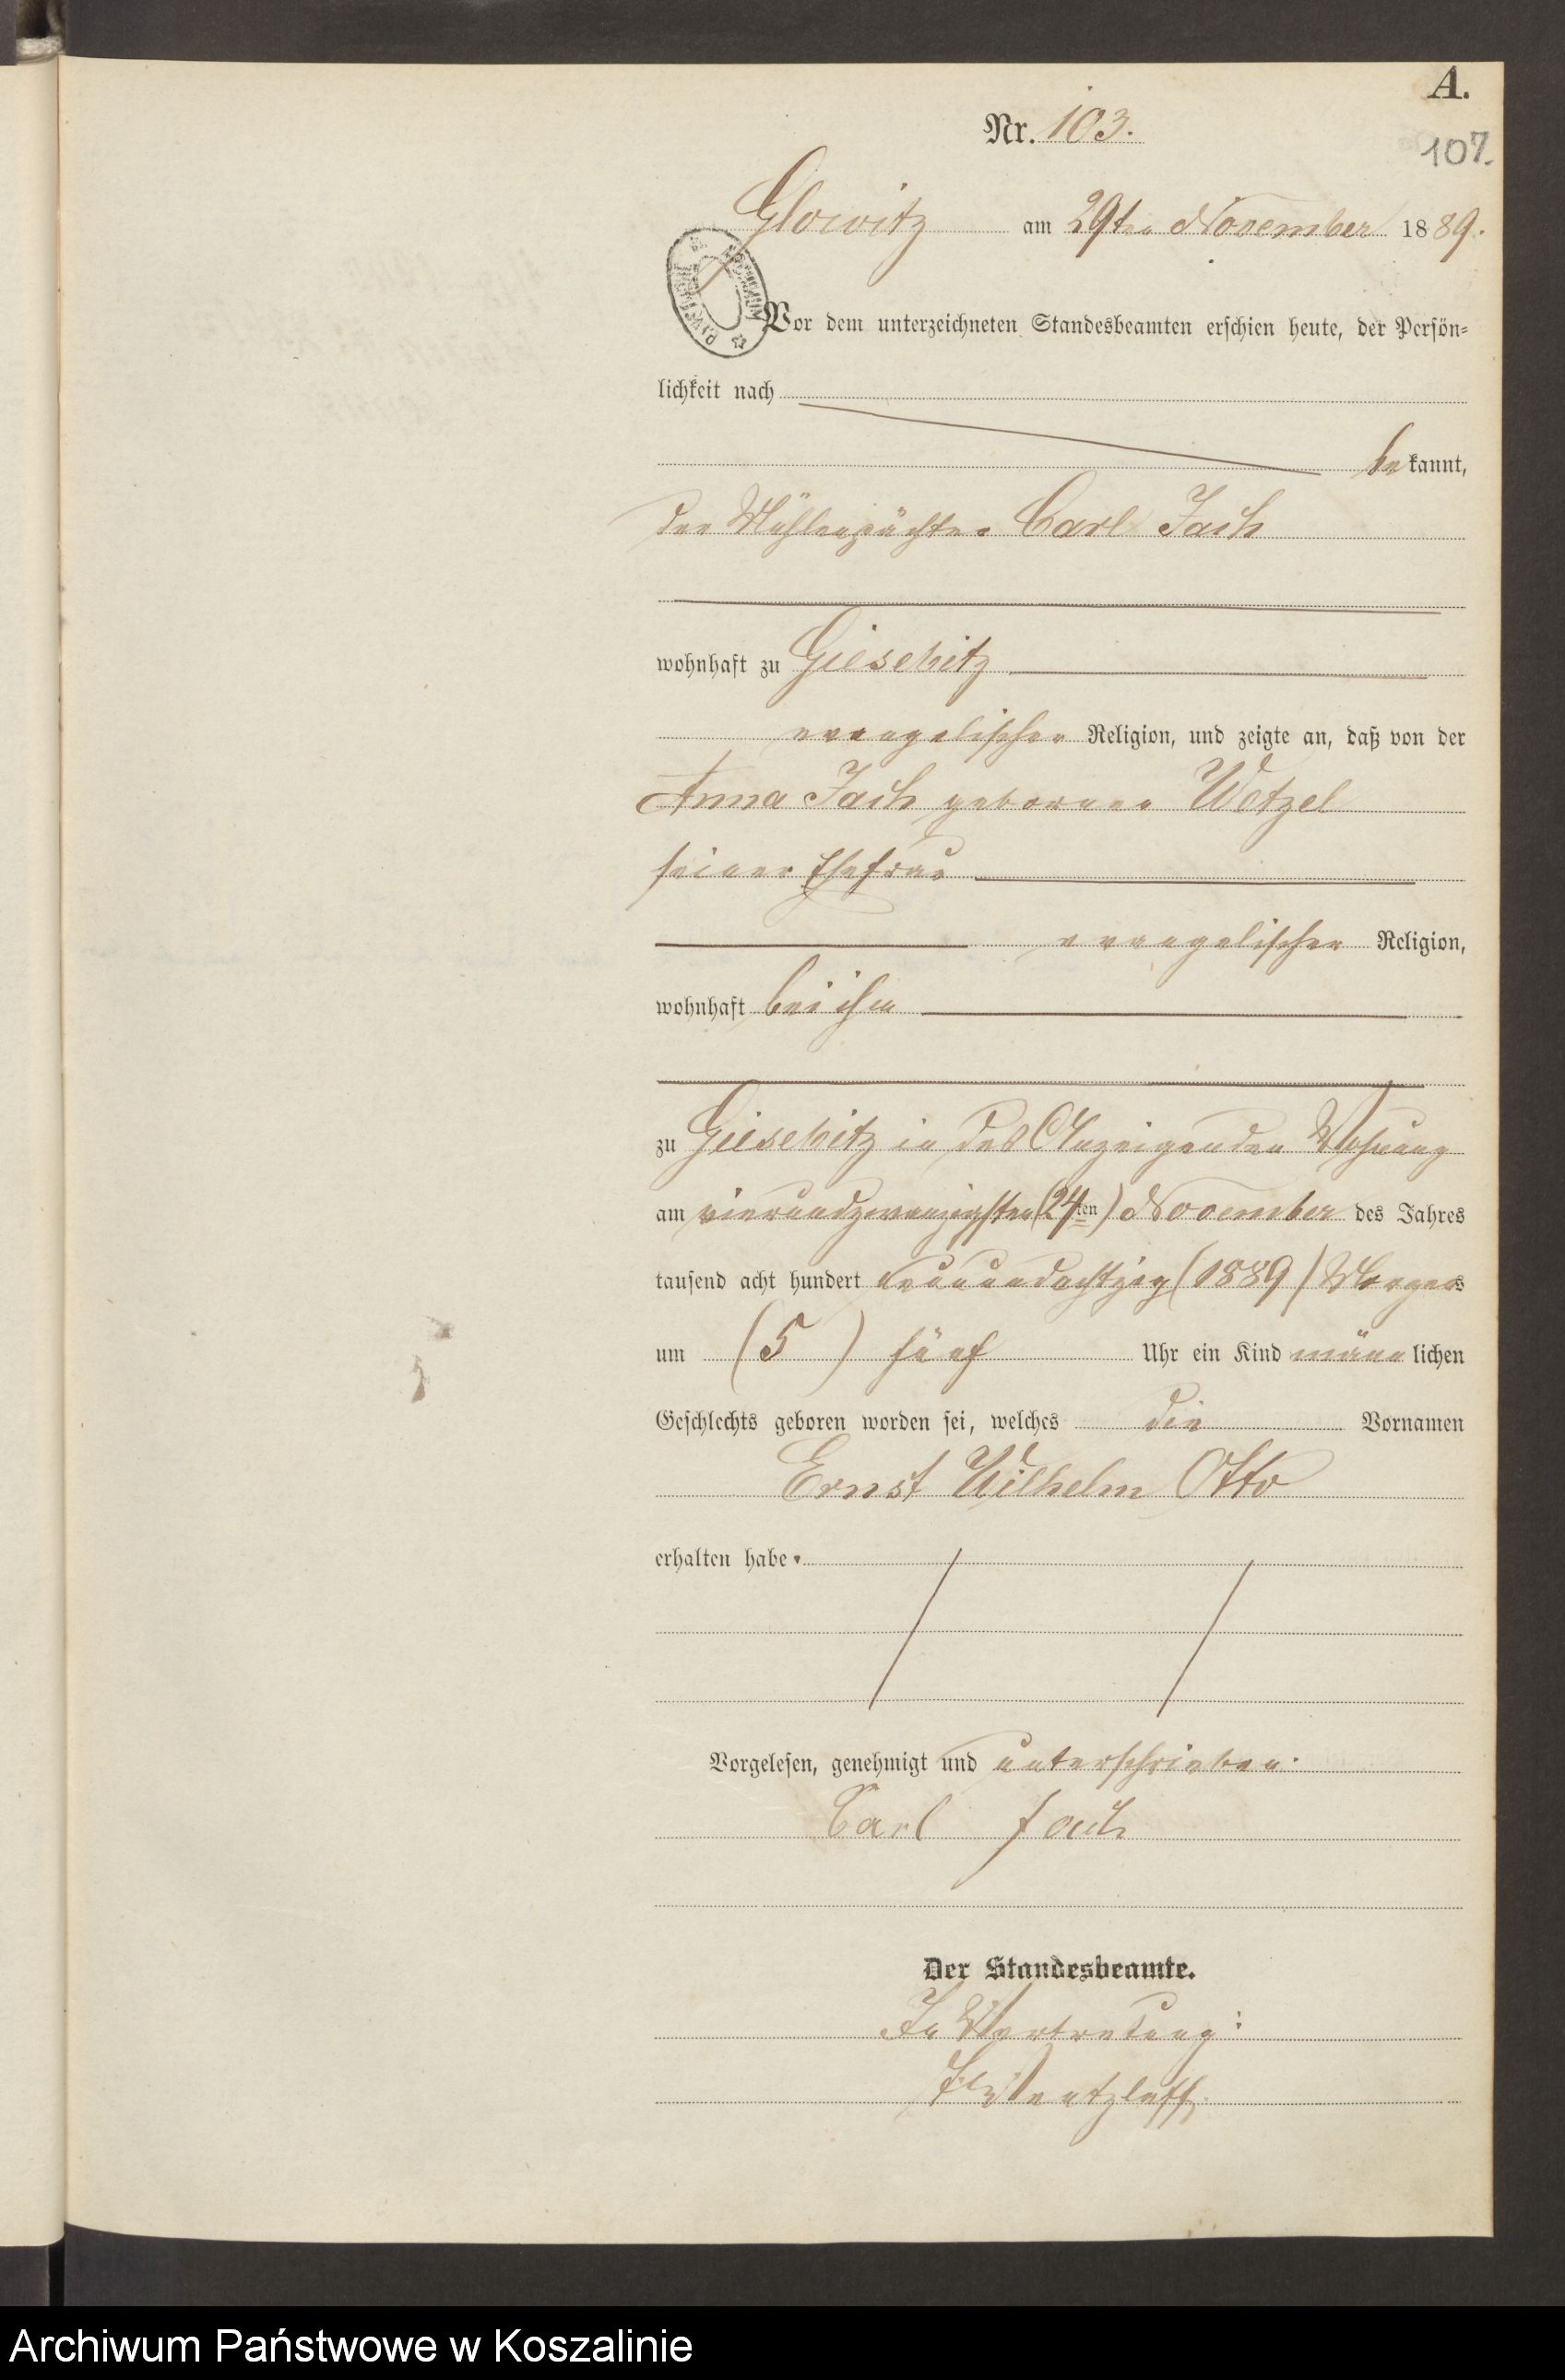 A.
Nr. 103.
107.
Glowitz am 29ten November 1889.
Vor dem unterzeichneten Standesbeamten erschien heute, der Persön-
lichkeit nach
bekannt,
der Mühlenpächter Carl Jach
wohnhaft zu Giesebitz
evangelischer Religion, und zeigte an, daß von der
Anna Jach geborenen Wetzel
seiner Ehefrau
evangelischer Religion,
wohnhaft bei ihm
zu Giesebitz in des Anzeigenden Wohnung
am vierundzwanzigsten (24ten) November des Jahres
tausend acht hundert neunundachtzig (1889) Morgens
um (5) fünf Uhr ein Kind männlichen
Geschlechts geboren worden sei, welches die Vornamen
Ernst Wilhelm Otto
erhalten habe.
Vorgelesen, genehmigt und unterschrieben.
Carl Jach
Der Standesbeamte.
In Vertretung:
Wentzlaff.
Archiwum Państwowe w Koszalinie